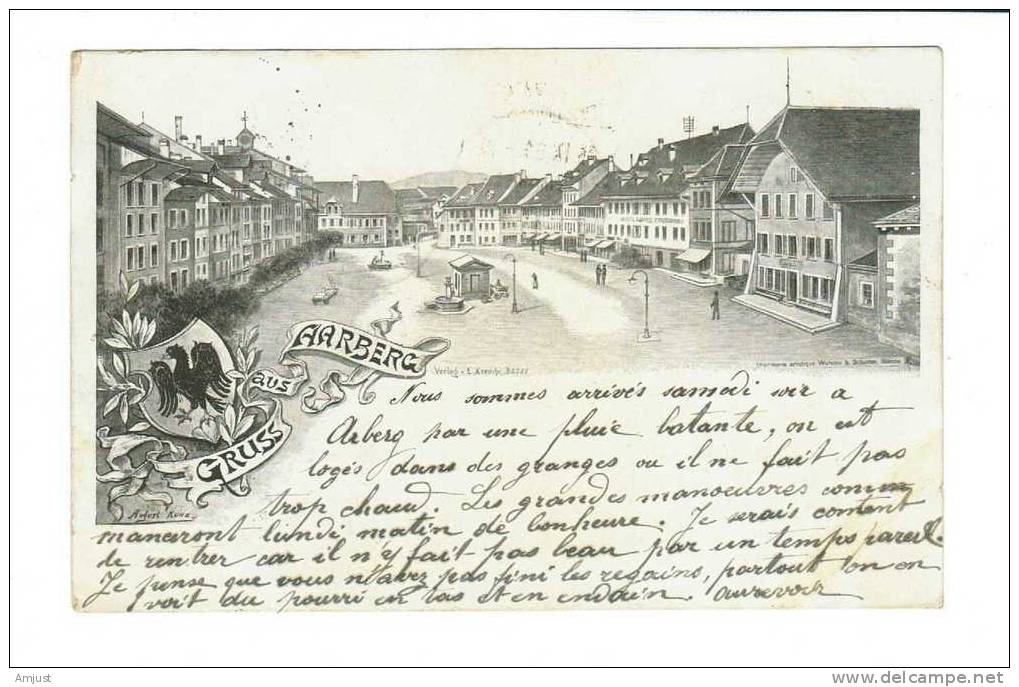 GRUSS
aus
AARBERG
Nous sommes arrivés samedi soir a
Arberg par une pluie batante, on est
logés dans des granges ou il ne fait pas
trop chaud. Les grandes manoeuvres comm
manceront lundi matin de bonheure. Je serais content
de rentrer car il n'y fait pas beau par un temps pareil.
Je pense que vous n'avez pas fini les regains, partout on en
voit du pourri en tas et en endain. aurevoir
Verlag v.
Imprimerie artistique
Amjust
www.delcampe.net